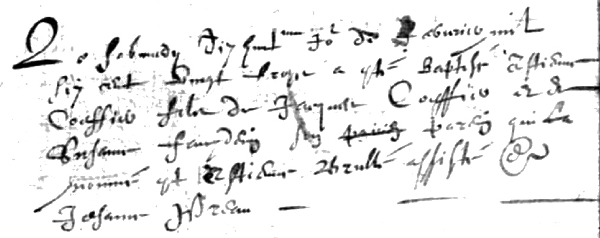 Le Sabmedy dix huict.me Jo.r de Febvrier mil
six cent vingt troys a esté Baptisé Estienne
Coeffier filz de Jacques Coeffier et de
Susanne parain qui la
nommé est Estienne Brullé assisté de
Jehanne